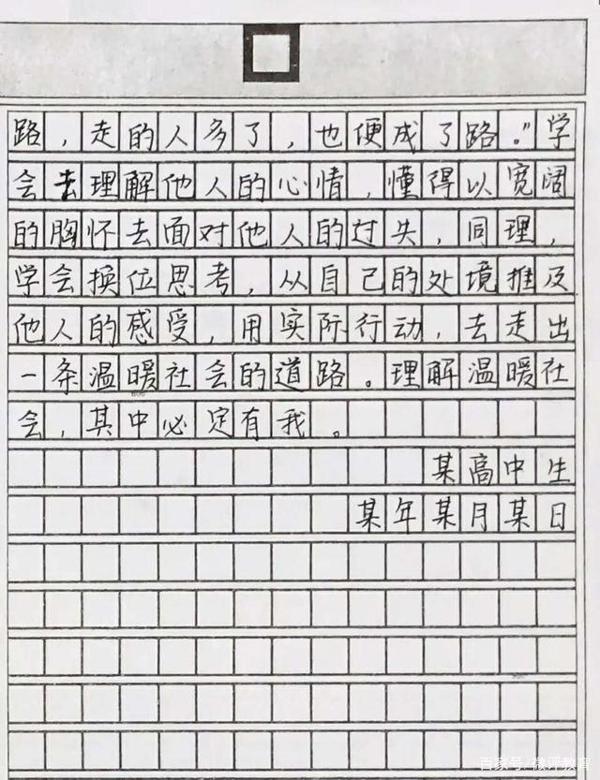 路，走的人多了，也便成了路。”学
会去理解他人的心情，懂得以宽阔
的胸怀去面对他人的过失，同理，
学会换位思考，从自己的处境推及
他人的感受，用实际行动，去走出
一条温暖社会的道路。理解温暖社
会，其中必定有我。
某高中生
某年某月某日
百家号/豫评教育